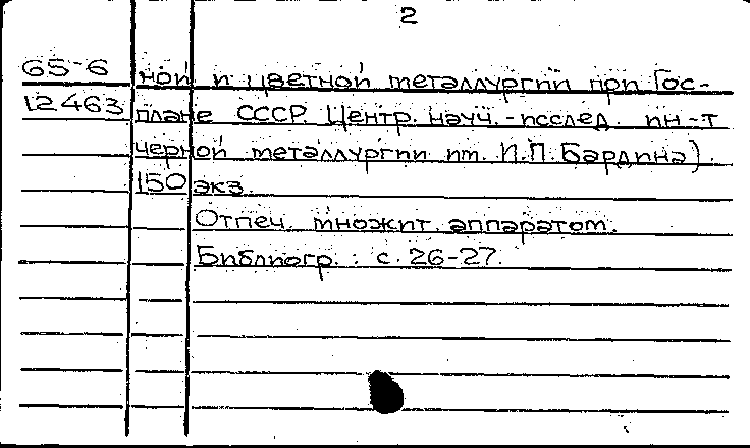 2
65-6 ной и цветной металлургии при Гос-
12463 плане СССР. Центр. науч.-исслед. ин-т
черной металлургии им. И.П.Бардина).
150 экз.
Отпеч. множит. аппаратом.
Библиогр.: с. 26-27.